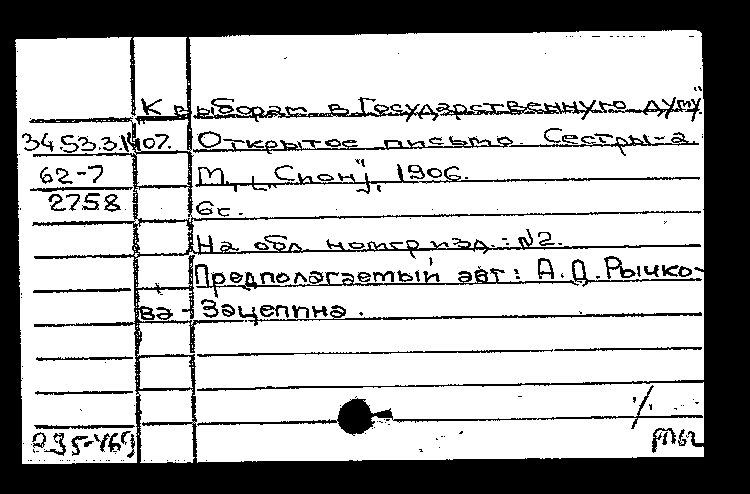 "К выборам в Государственную думу"
3453.3.1407. Открытое письмо Сестры-а.
62-7 М., [„Спон"], 1906.
2758 6с.
На обл. номер изд.: №2.
Предполагаемый авт: А.Д.Рычко-
ва-Зацепина.
РМ62